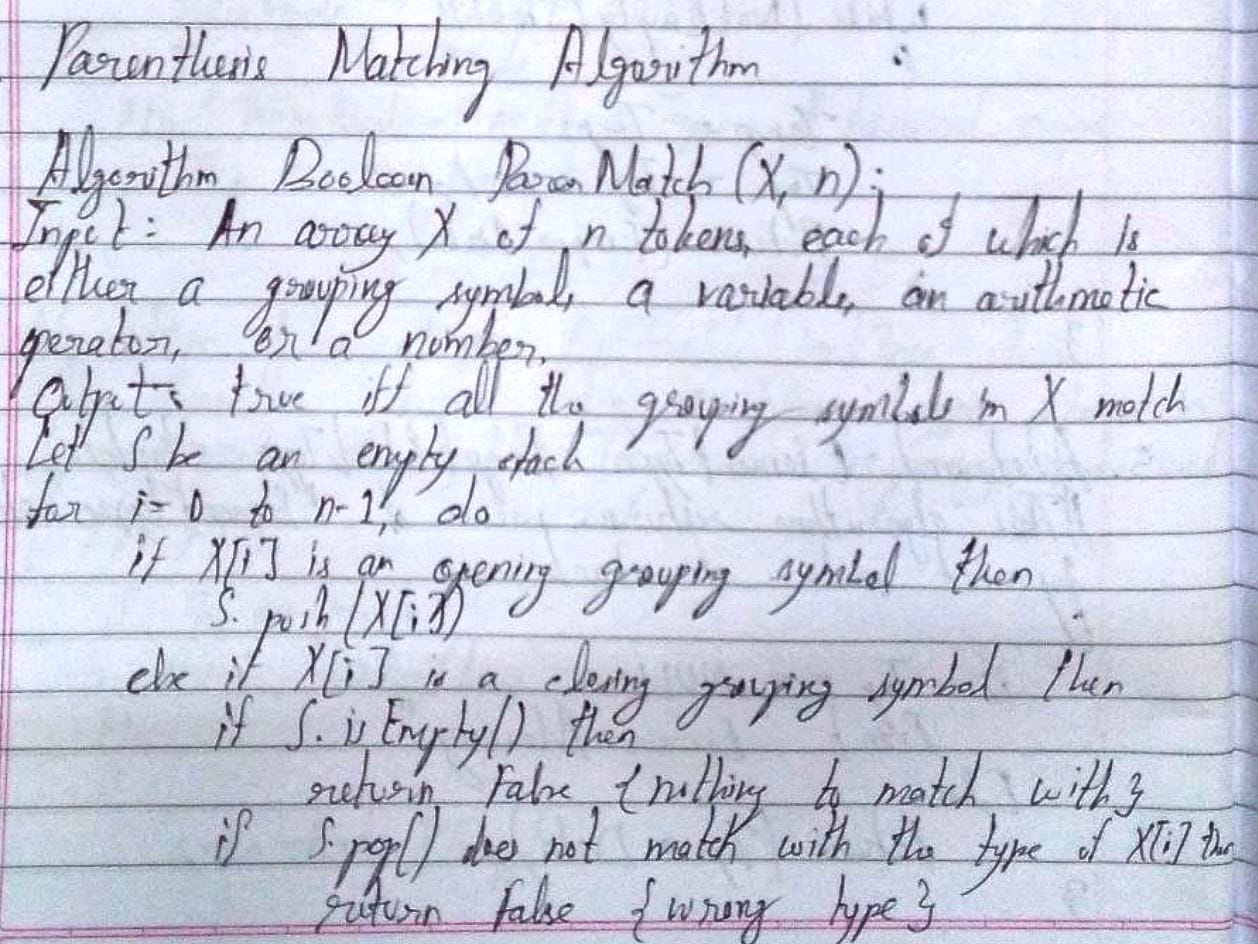 Parenthesis Matching Algorithm :
Algorithm Boolean Paren Match (X, n);
Input: An array X of n tokens, each of which is
either a grouping symbol, a variable, an arithmetic
perator, or a number.
Output: true iff all the grouping symbols in X match
Let S be an empty stack
for i=0 to n-1, do
if X[i] is an opening grouping symbol then
S. push (X[i])
else if X[i] is a closing grouping symbol then
if S. is Empty() then
return False {nothing to match with}
if S. pop() does not match with the type of X[i] then
return False {wrong type}